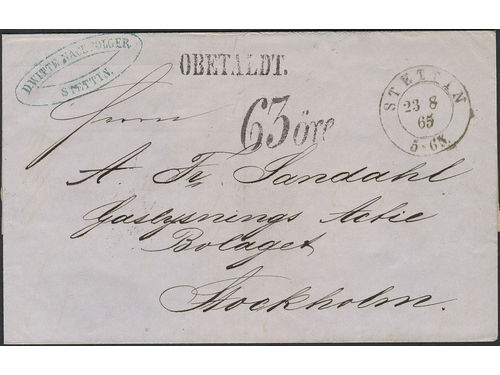 D. WITTE NACHFOLGER
STETTIN.
OBETALDT.
63 öre
STETTIN
23 8
65
5-6N.
Herrn
A. Fr. Sandahl
Gaslysnings Actie
Bolaget
Stockholm.